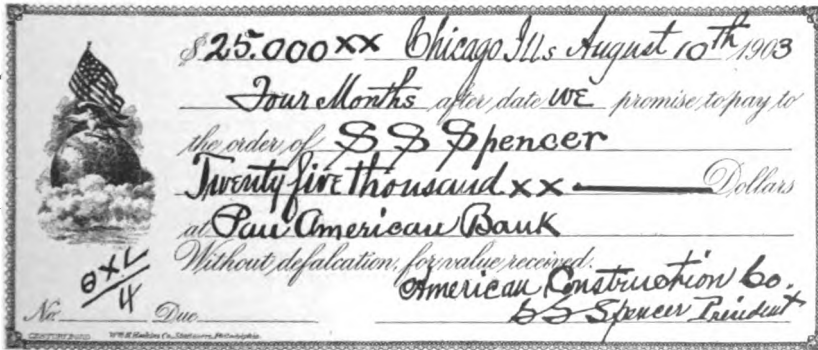 $25.000 xx Chicago Ills August 10th 1903
Four Months after date WE promise to pay to
the order of S S Spencer
Twenty five thousand xx Dollars
at Pan American Bank
Without defalcation, for value received.
American Construction Co.
No. Due S S Spencer President
CENTURY BOND Wm H Hoskins Co., Stationers, Philadelphia.